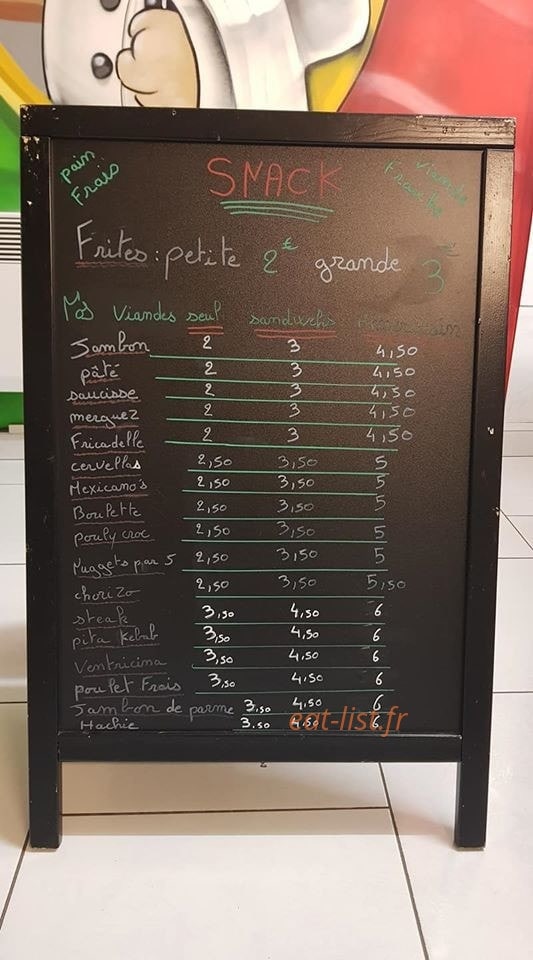 pain Frais
SMACK
Viande Fraiche
Frites : petite 2€ grande 3€
Nos Viandes seul sandwichs Americain
Jambon 2 3 4,50
pâté 2 3 4,50
saucisse 2 3 4,50
merguez 2 3 4,50
Fricadelle 2 3 4,50
cervellas 2,50 3,50 5
Mexicano's 2,50 3,50 5
Boulette 2,50 3,50 5
pouly croc 2,50 3,50 5
Nuggets par 5 2,50 3,50 5
chorizo 2,50 3,50 5,50
steak 3,50 4,50 6
pita Kebab 3,50 4,50 6
Ventricina 3,50 4,50 6
poulet Frais 3,50 4,50 6
Jambon de parme 3,50 4,50 6
Hachie 3.50 4,50 6
eat-list.fr